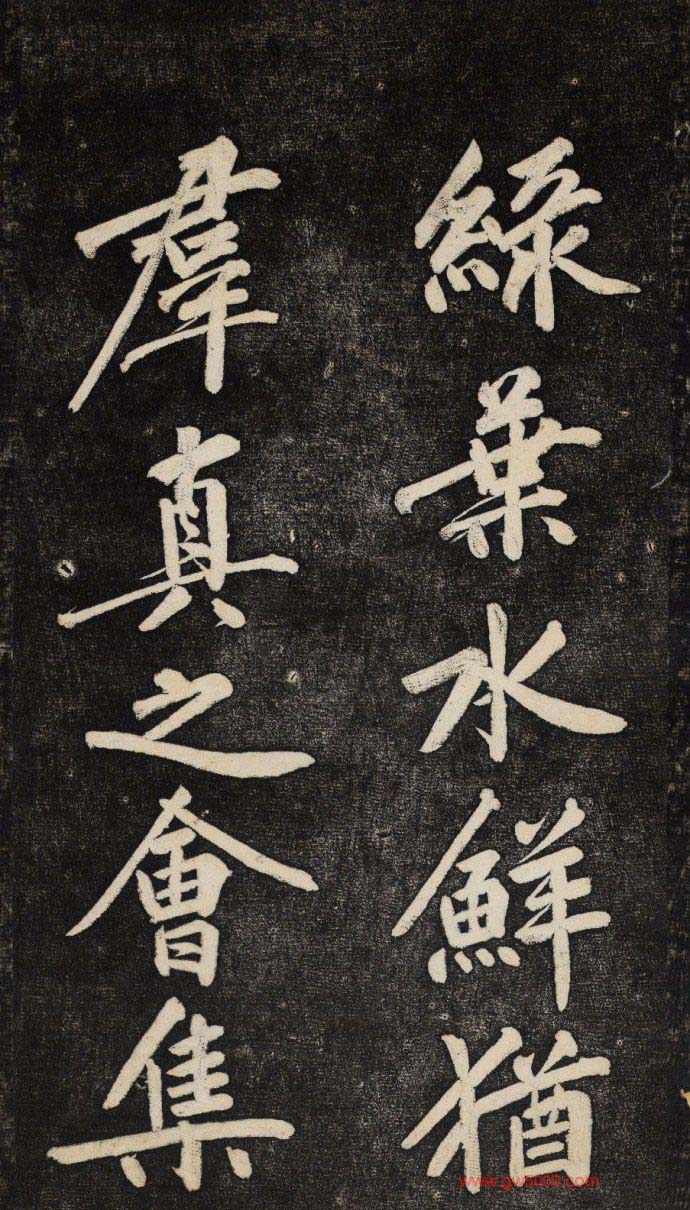 綠葉水鮮猶
羣真之會集
www.gw5000.com